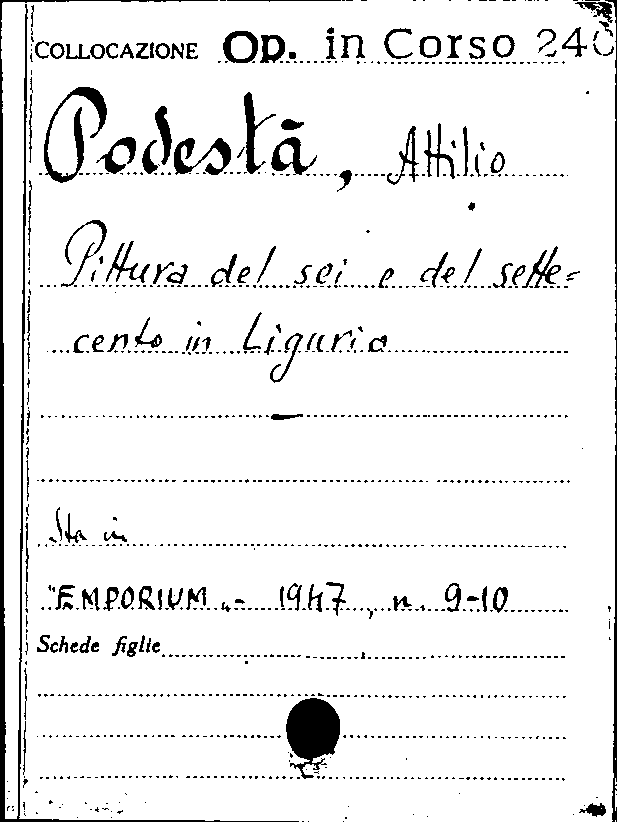 COLLOCAZIONE Op. in Corso 240
Podestà, Attilio
Pittura del sei e del sette=
cento in Liguria
Sta in
"EMPORIUM„- 1947, n. 9-10
Schede figlie